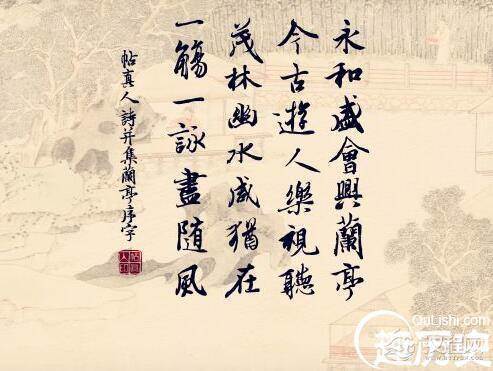 永和盛會興蘭亭
今古遊人樂視聽
茂林幽水咸猶在
一觴一詠盡隨風
帖真人詩并集蘭亭序字
QuLishi.com
趣历史